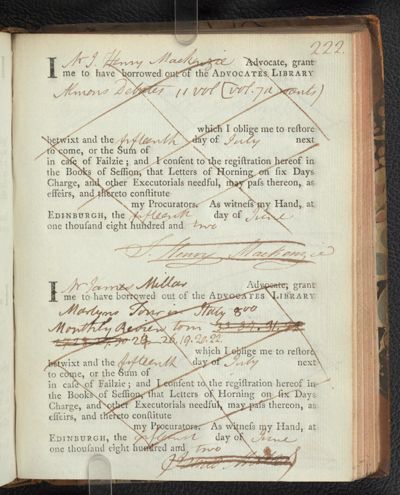 222.
I Mr J. Henry Mackenzie Advocate, grant
me to have borrowed out of the ADVOCATES LIBRARY
Almons Debates 11 vol (vol. 7 d wants)
which I oblige me to restore
betwixt and the fifteenth day of July next
to come, or the Sum of
in case of Failzie; and I consent to the registration hereof in
the Books of Session, that Letters of Horning on six Days
Charge, and other Executorials needful, may pass thereon, as
effeirs, and thereto constitute
my Procurators. As witness my Hand, at
EDINBURGH, the fifteenth day of June
one thousand eight hundred and two
J. Henry Mackenzie
I Mr James Millar Advocate, grant
me to have borrowed out of the ADVOCATES LIBRARY
Martyns Tour in Italy 8vo
Monthly Review tom
24. 26. 19. 20. 22
which I oblige me to restore
betwixt and the fifteenth day of July next
to come, or the Sum of
in case of Failzie; and I consent to the registration hereof in
the Books of Session, that Letters of Horning on six Days
Charge, and other Executorials needful, may pass thereon, as
effeirs, and thereto constitute
my Procurators. As witness my Hand, at
EDINBURGH, the fifteenth day of June
one thousand eight hundred and two